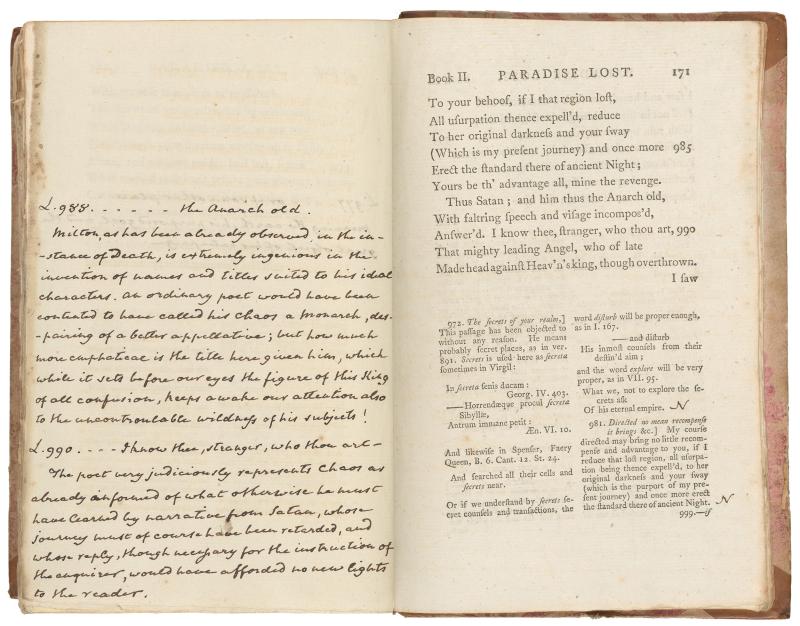 L. 988. . . . . . the Anarch old.
Milton, as has been already observed in the in-
-stance of Death, is extremely ingenious in the
invention of names and titles suited to his ideal
characters. An ordinary poet would have been
contented to have called his Chaos a Monarch, des-
-pairing of a better appellative; but how much
more emphatical is the title here given him, which
while it sets before our eyes the figure of this King
of all confusion, keeps awake our attention also
to the uncontroulable wildness of his subjects!
L. 990. . . . I know thee, stranger, who thou art–
The poet very judiciously represents Chaos as
already informed of what otherwise he must
have learned by narrative from Satan, whose
journey must of course have been retarded, and
whose reply, though necessary for the instruction of
the enquirer, would have afforded no new lights
to the reader.
Book II. PARADISE LOST. 171
To your behoof, if I that region loſt,
All uſurpation thence expell'd, reduce
To her original darkneſs and your ſway
(Which is my preſent journey) and once more 985
Erect the ſtandard there of ancient Night;
Yours be th' advantage all, mine the revenge.
Thus Satan; and him thus the Anarch old,
With faltring ſpeech and viſage incompos'd,
Anſwer'd. I know thee, ſtranger, who thou art, 990
That mighty leading Angel, who of late
Made head againſt Heav'n's king, though overthrown.
I ſaw
972. The ſecrets of your realm,]
This paſſage has been objected to
without any reaſon. He means
probably ſecret places, as in ver.
891. Secrets is uſed here as ſecreta
ſometimes in Virgil:
In ſecreta ſenis ducam:
Georg. IV. 403.
—Horrendæque procul ſecreta
Sibyllæ,
Antrum immane petit:
Æn. VI. 10.
And likewiſe in Spenſer, Faery
Queen, B. 6. Cant. 12. St. 24.
And ſearched all their cells and
ſecrets near.
Or if we underſtand by ſecrets ſe-
cret counſels and tranſactions, the
word diſturb will be proper enough,
as in I. 167.
—— and diſturb
His inmoſt counſels from their
deſtin'd aim;
and the word explore will be very
proper, as in VII. 95.
What we, not to explore the ſe-
crets aſk
Of his eternal empire. N
981. Directed no mean recompenſe
it brings &c.] My courſe
directed may bring no little recom-
penſe and advantage to you, if I
reduce that loſt region, all uſurpa-
tion being thence expell'd, to her
original darkneſs and your ſway
(which is the purport of my pre-
ſent journey) and once more erect
the ſtandard there of ancient Night. N
999.—if